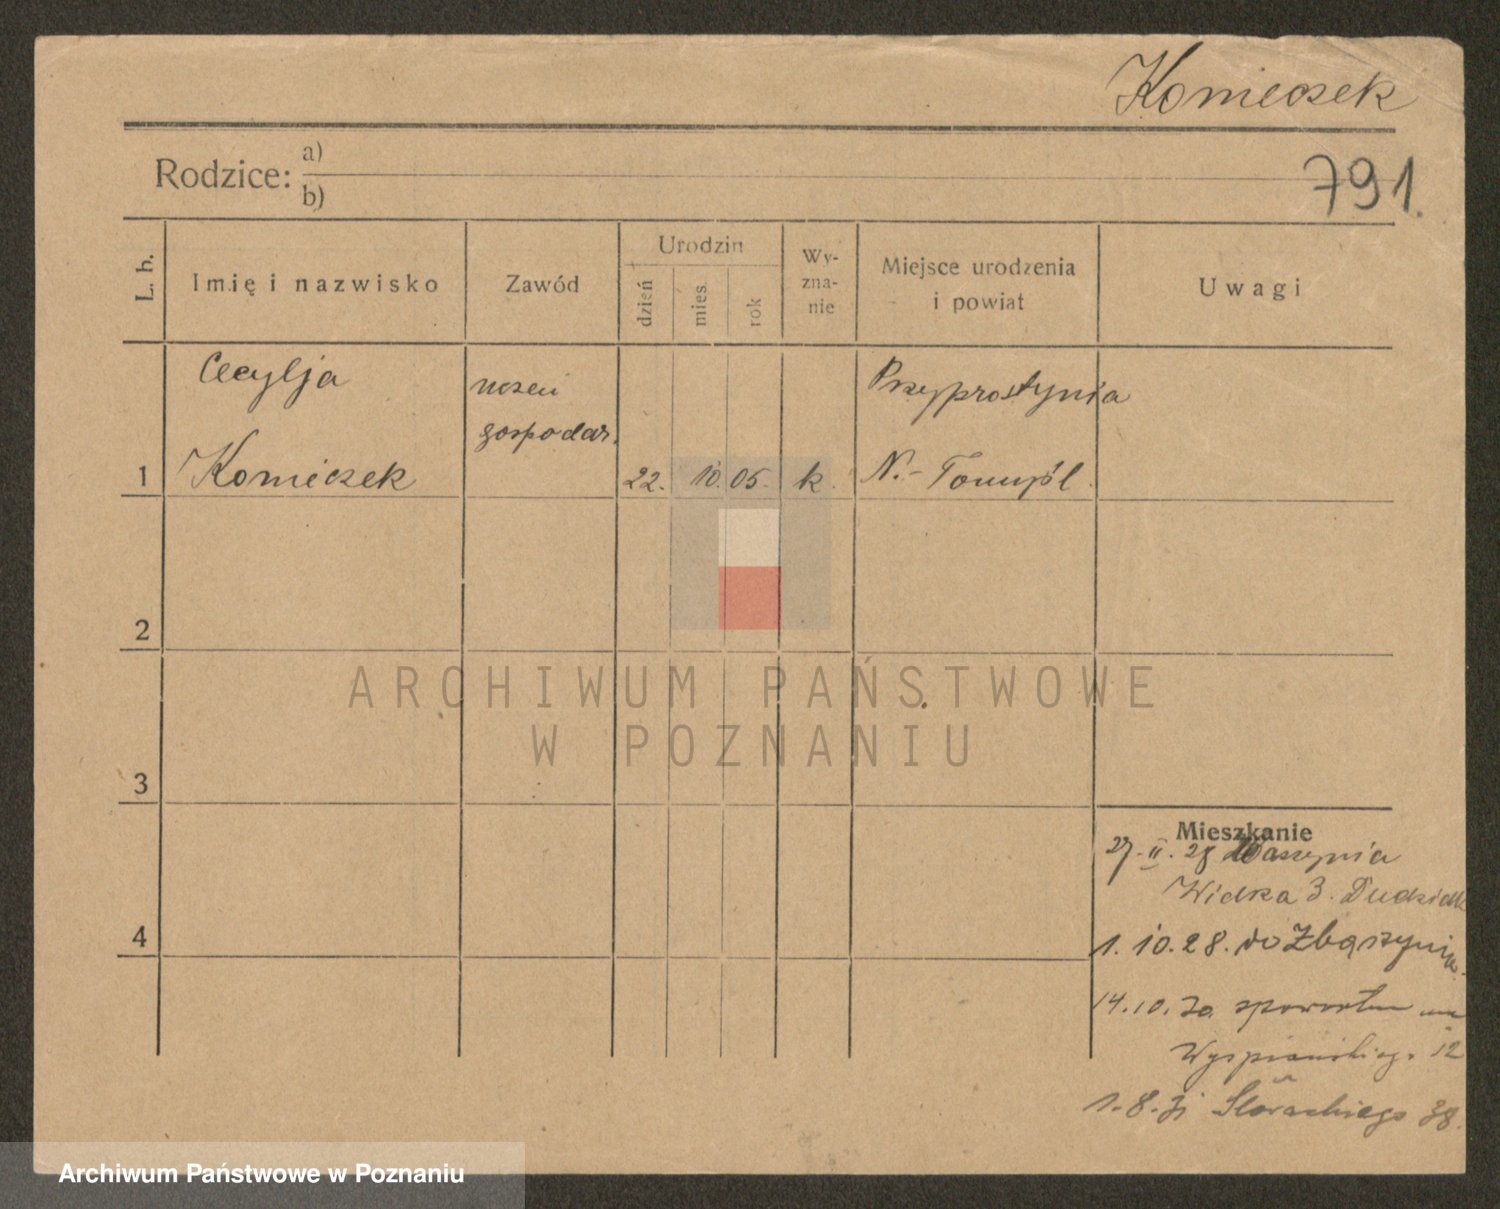 Konieczek
791.
Rodzice: a)
b)
L. b.
Imię i nazwisko
Zawód
Urodzin
dzień
mies.
rok
Wy-
zna-
nie
Miejsce urodzenia
i powiat
Uwagi
Cecylja
Konieczek
uczeń
gospodar.
22. 10. 05. k.
Przyprostynia
N.-Tomyśl.
1
2
3
4
ARCHIWUM PAŃSTWOWE
W POZNANIU
Mieszkanie
27. II. 28
3.
1. 10. 28. do Zbąszynia.
14. 10. 30. zpowrotem
Wyspiańskiego 12
1. 8. 31 Słowackiego 38.
Archiwum Państwowe w Poznaniu